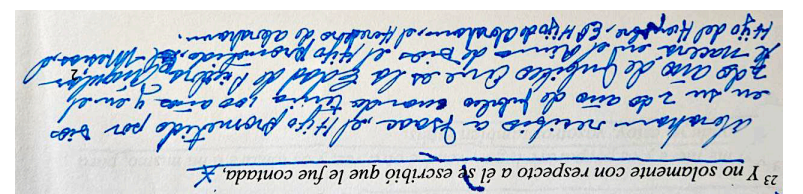 23 Y no solamente con respecto a él se escribió que le fue contada, x
Abraham recibio a Isaac, el Hijo prometido por Dios
en su 2do año de jubileo cuando tenia 100 años y en el
2do año de Jubileo Que es la Edad de Piedra Angular
nacera en el Reino de Dios el Hijo prometido, El Mesias, el
Hijo del Hombre, El Hijo de Abraham, el Heredero de abraham.